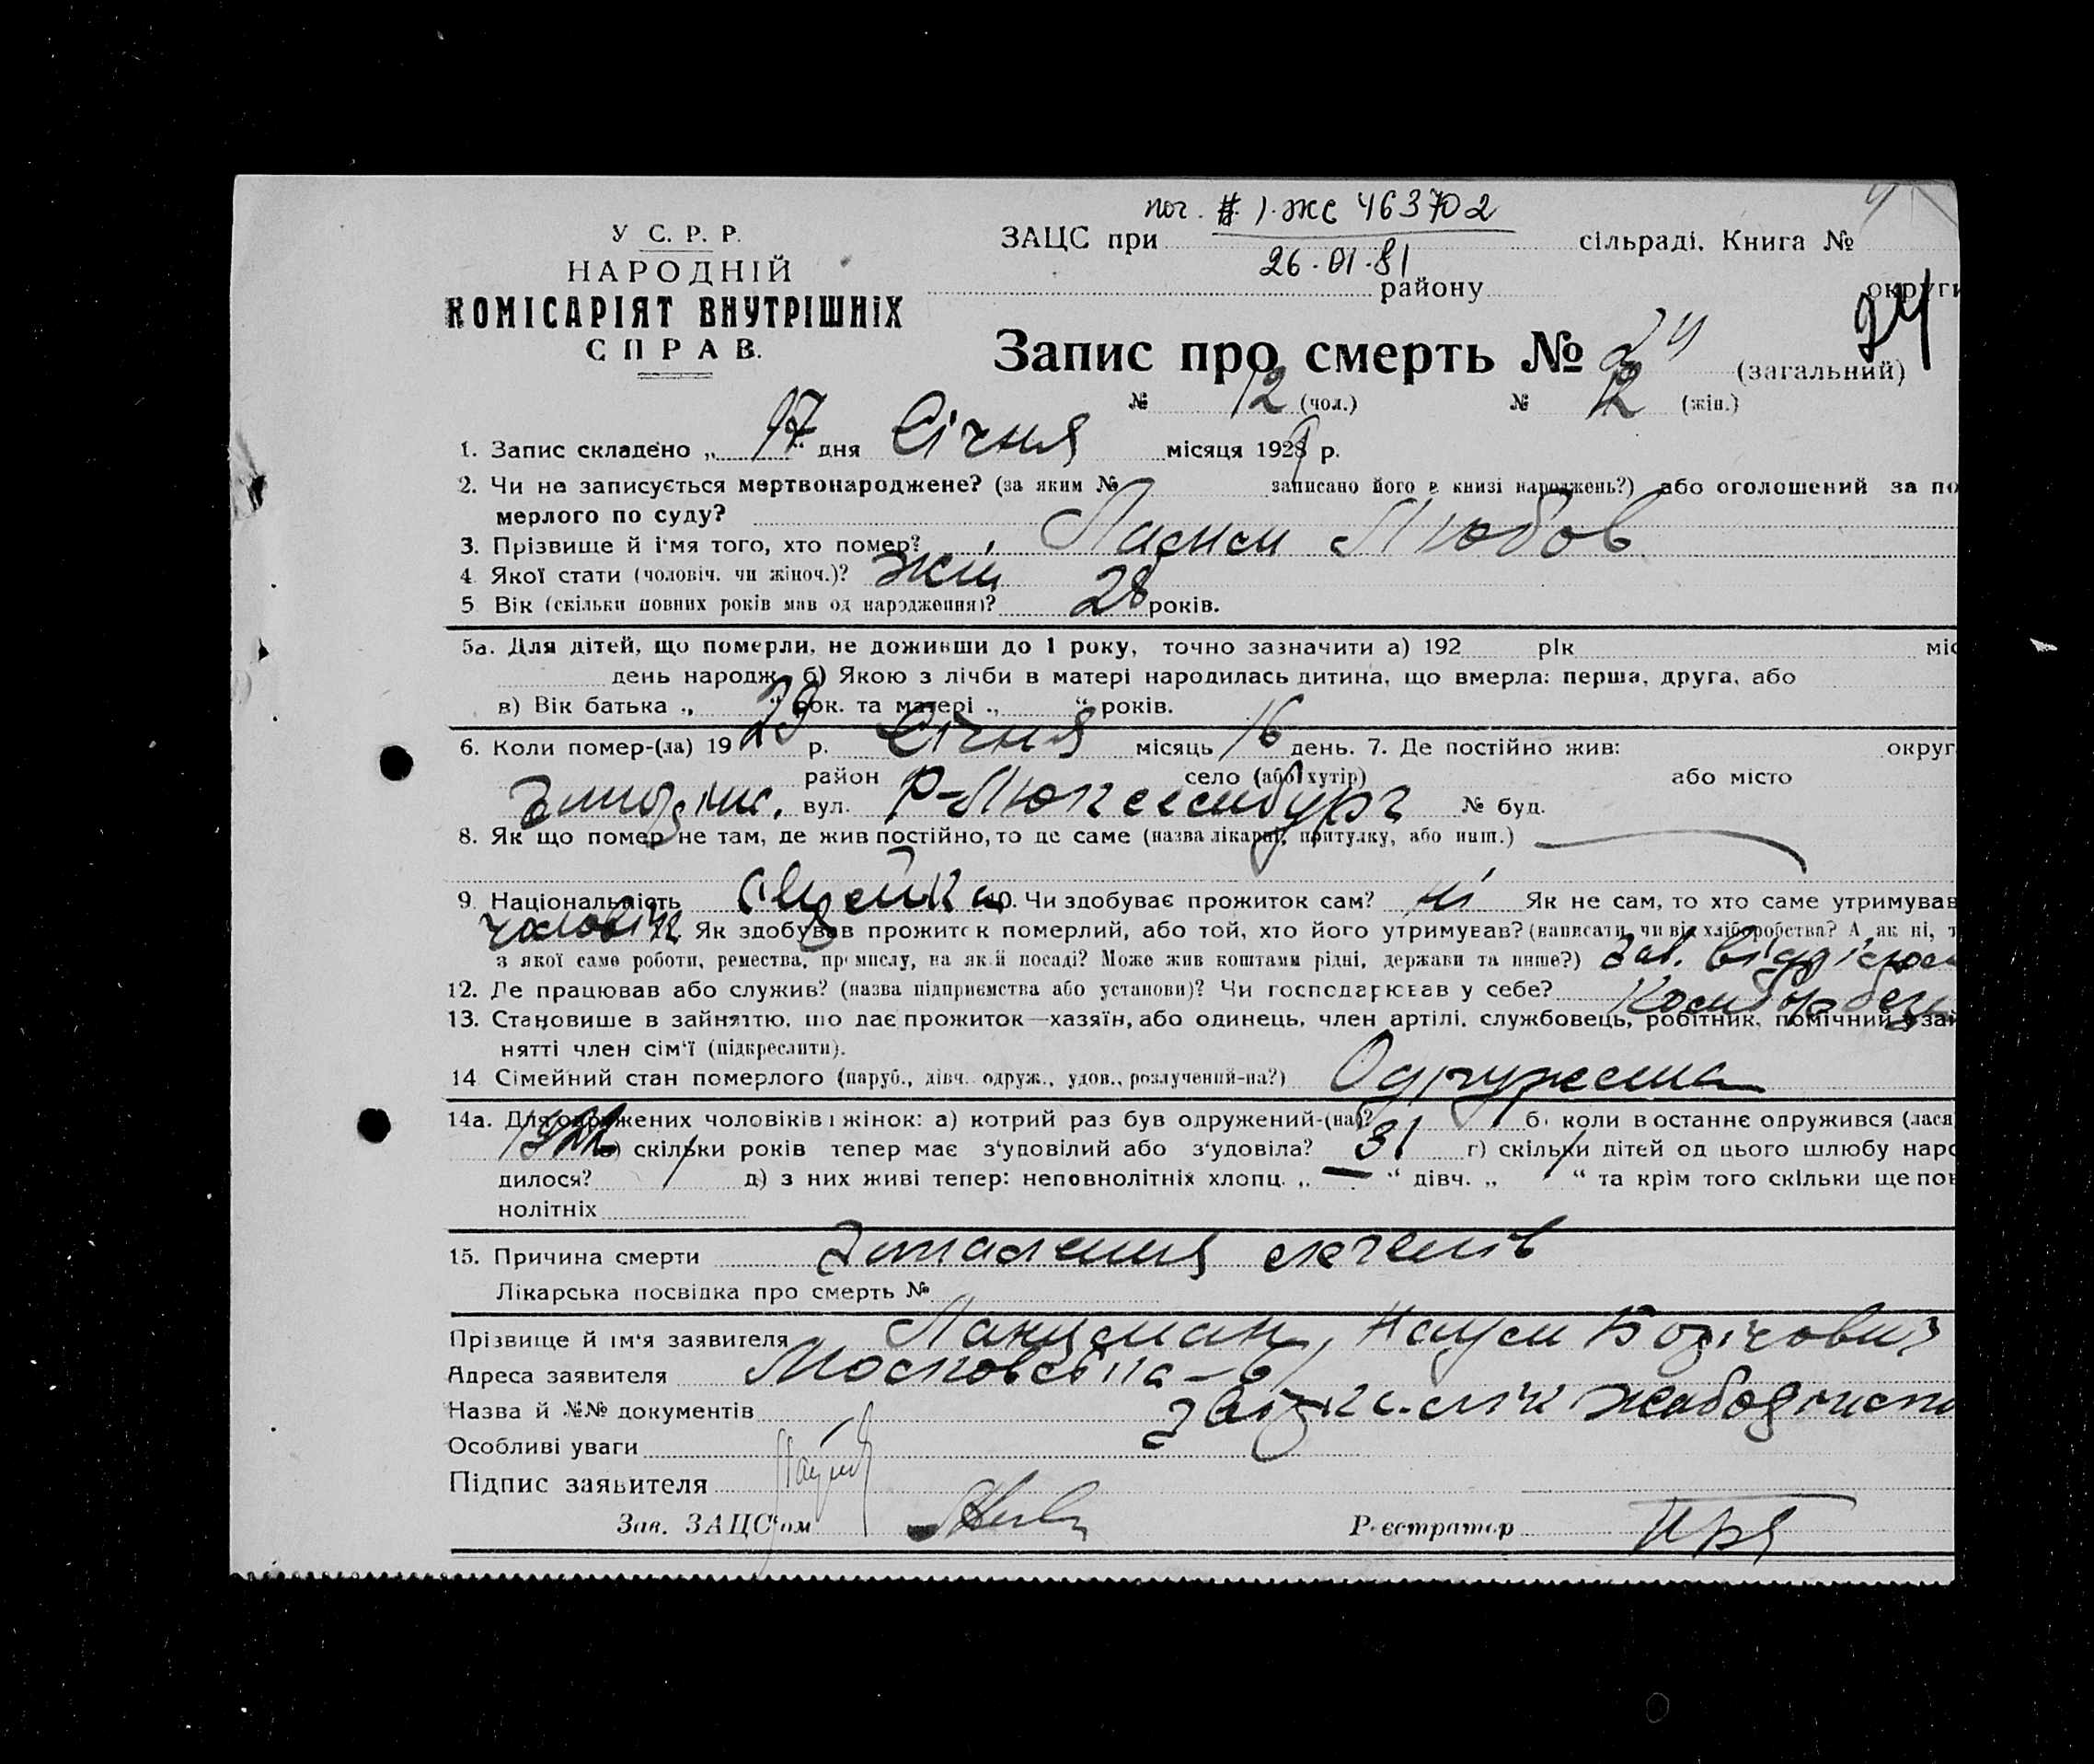 У С. Р. Р.
НАРОДНІЙ
КОМІСАРІЯТ ВНУТРІШНІХ
СПРАВ.
ЗАЦС при 1. ЖС 463702 сільраді. Книга №
26.01.81
району округи
24
Запис про смерть № 24 (загальний)
№ 12 (чол.) № 12 (жін.)
1. Запис складено „ 17 " дня Січня місяця 1929 р.
2. Чи не записується мертвонароджене? (за яким № записано його в книзі народжень?) або оголошений за по
мерлого по суду?
3. Прізвище й імя того, хто помер? Любов
4. Якої стати (чоловіч. чи жіноч.)? жін
5 Вік (скільки повних років мав од народження)? 28 років.
5а. Для дітей, що померли, не доживши до 1 року, точно зазначити а) 192 рік міс
день народж. б) Якою з лічби в матері народилась дитина, що вмерла: перша, друга, або
в) Вік батька „ " рок. та матері „ " років.
6. Коли помер-(ла) 19 29 р. Січня місяць 16 день. 7. Де постійно жив: округ
район село (або хутір) або місто
вул. Р-Люксембург № буд.
8. Як що помер не там, де жив постійно, то де саме (назва лікарні, притулку, або инш.)
9. Національність 10. Чи здобуває прожиток сам? ні Як не сам, то хто саме утримував
чоловік Як здобував прожиток померлий, або той, хто його утримував? (написати, чи від хліборобства? А як ні, т
з якої саме роботи, ремества, промислу, на якій посаді? Може жив коштами рідні, держави та инше?) Зав.
12. Де працював або служив? (назва підприємства або установи)? Чи господарював у себе?
13. Становище в зайняттю, що дає прожиток—хазяїн, або одинець, член артілі, службовець, робітник, помічний у зай
нятті член сім'ї (підкреслити).
14 Сімейний стан померлого (паруб., дівч. одруж., удов., розлучений-на?) Одружена
14а. Для одружених чоловіків і жінок: а) котрий раз був одружений-(на)? б) коли востаннє одружився (лася
в) скільки років тепер має з'удовілий або з'удовіла? 31 г) скільки дітей од цього шлюбу наро
дилося? 1 д) з них живі тепер: неповнолітніх хлопц. „ — " дівч. „ 1 " та крім того скільки ще пов
нолітніх
15. Причина смерти Запалення легенів
Лікарська посвідка про смерть №
Прізвище й ім'я заявителя Ланцман, Наум
Адреса заявителя Московська - 61
Назва й №№ документів
Особливі уваги
Підпис заявителя
Зав. ЗАЦС'ом Реєстратор